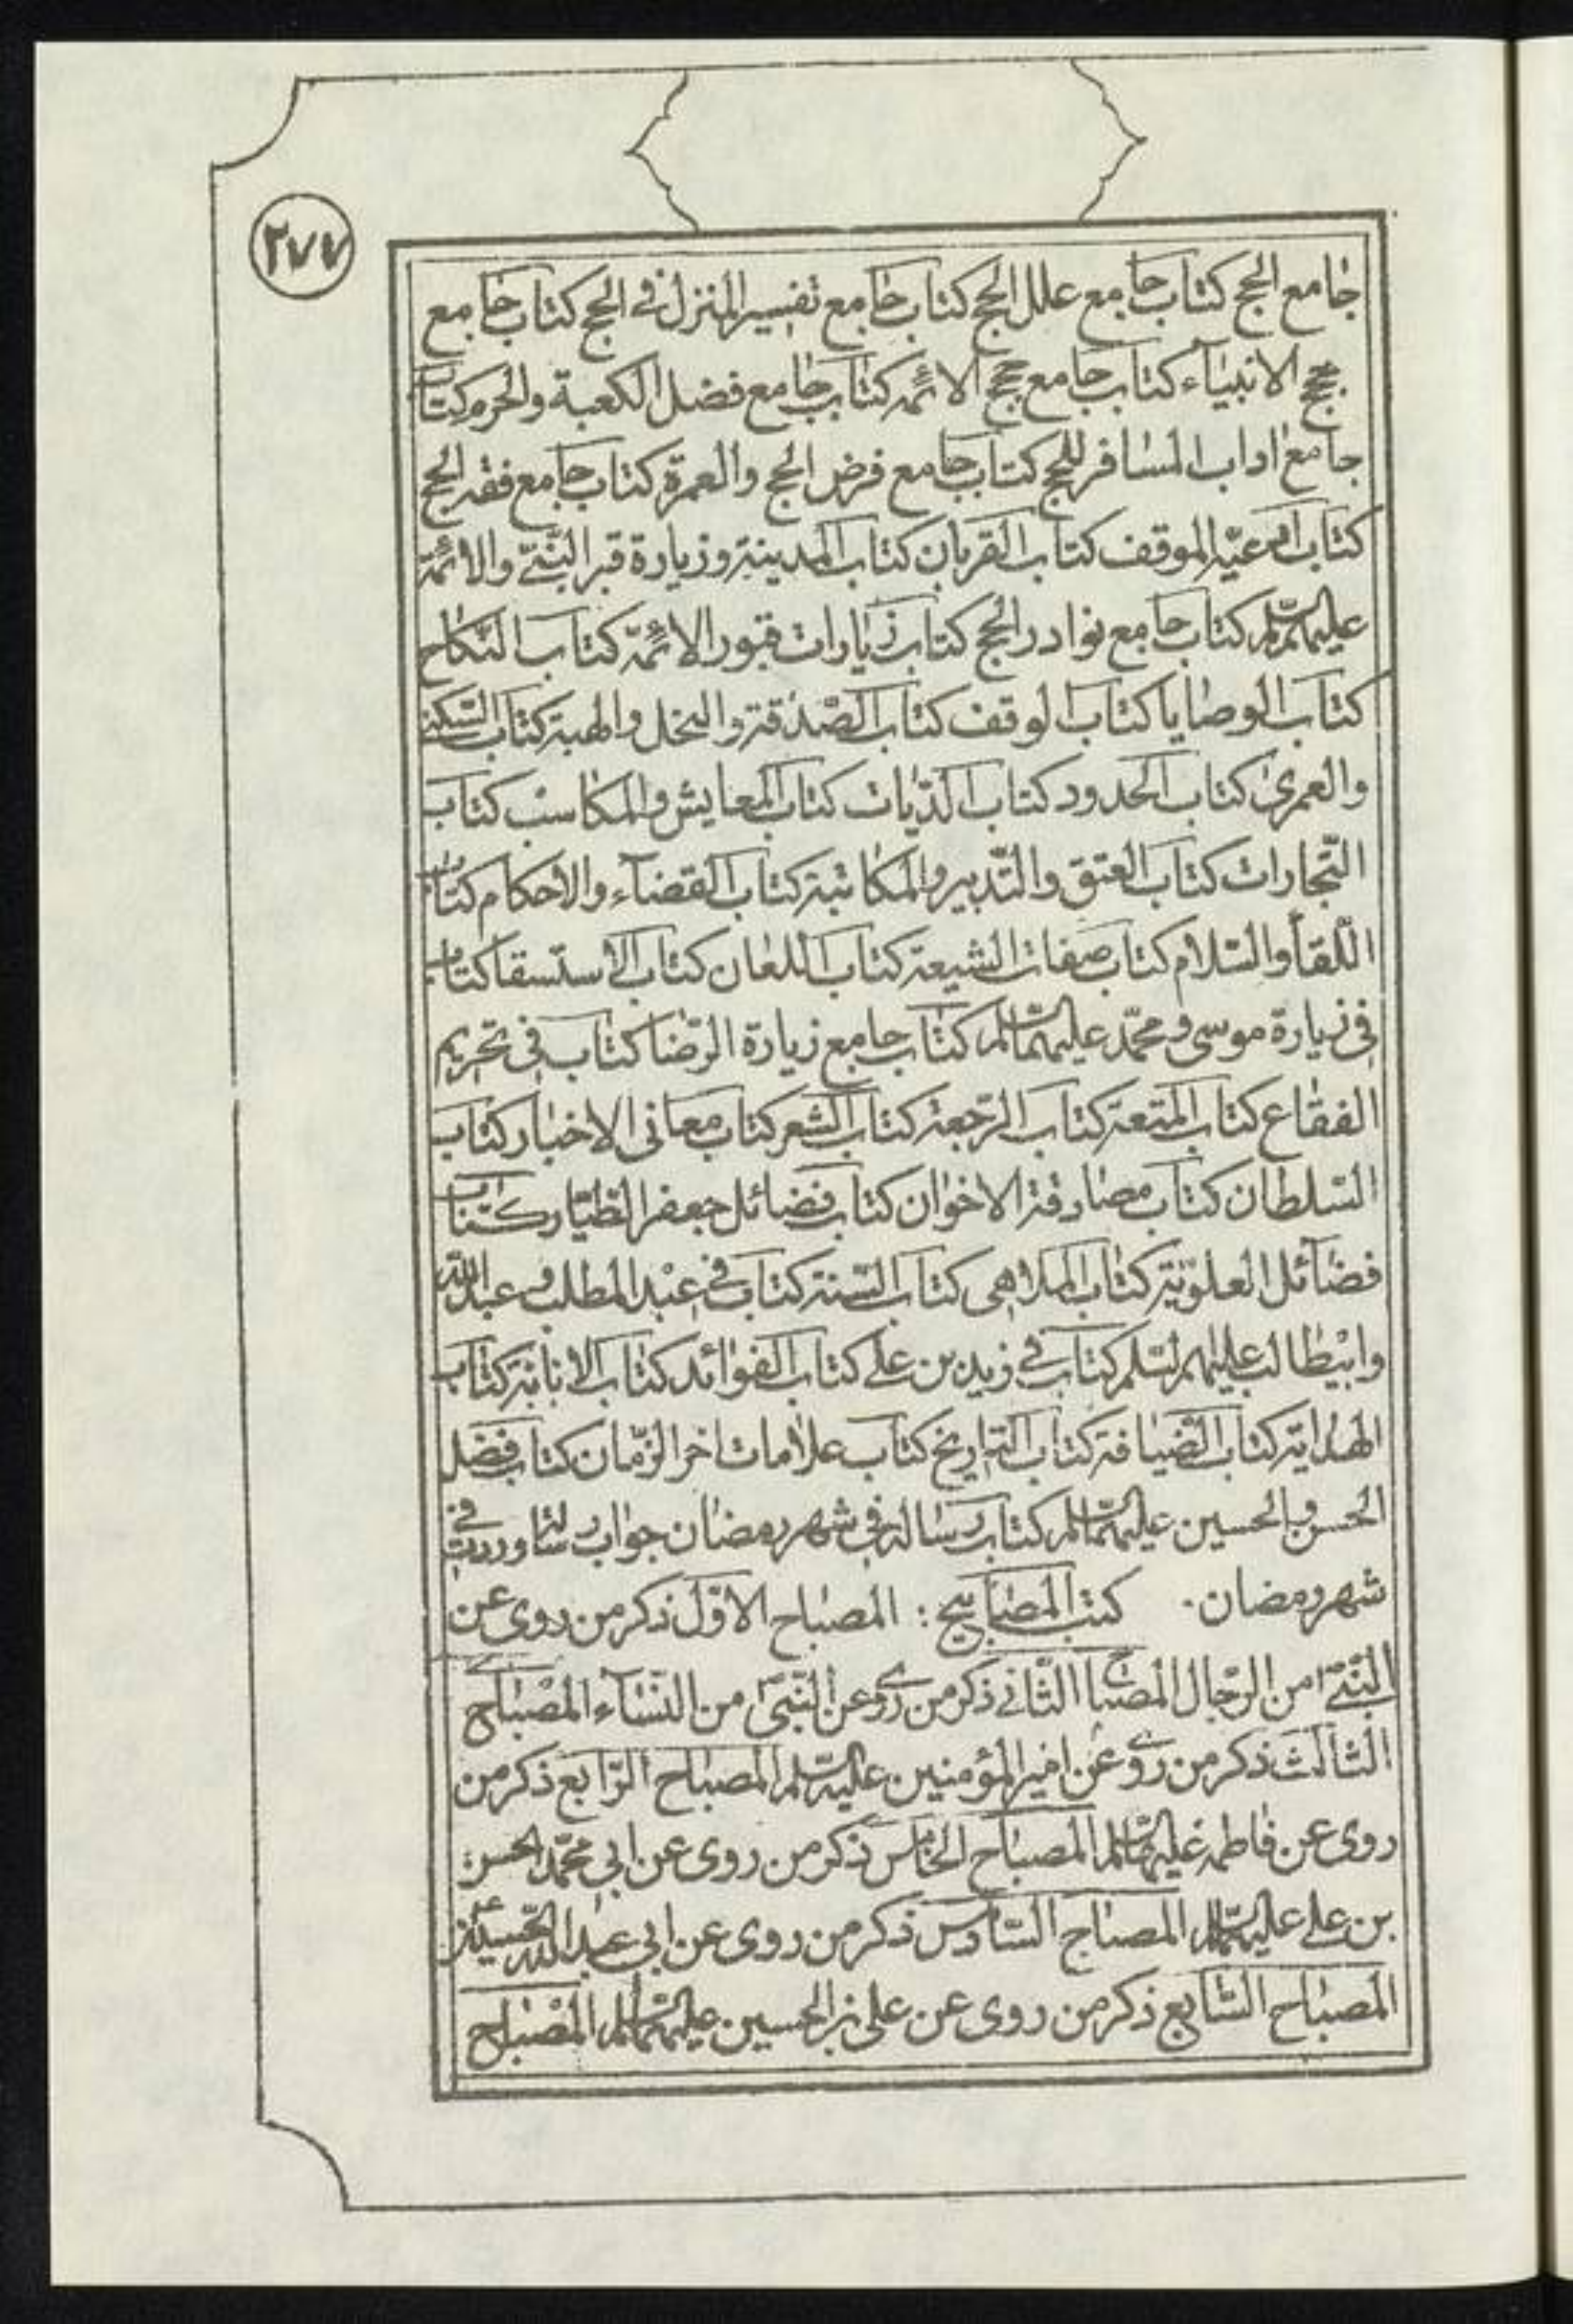 ٢٧٧
جامع الحج كتاب جامع علل الحج كتاب جامع تفسير المنزل في الحج كتاب جامع
حجج الانبياء كتاب جامع حجج الائمه كتاب جامع فضل الكعبة والحرم كتاب
جامع اداب المسافر للحج كتاب جامع فرض الحج والعمرة كتاب جامع فقه الحج
كتاب ادعية الموقف كتاب القربان كتاب المدينة وزيارة قبر النبي والائمة
عليهم السلم كتاب جامع نوادر الحج كتاب زيارات قبور الائمّة كتاب النكاح
كتاب الوصايا كتاب الوقف كتاب الصدقة والنحل والهبة كتاب السكنى
والعمرى كتاب الحدود كتاب الدّيات كتاب المعايش والمكاسب كتاب
التّجارات كتاب العتق والتّدبير والمكاتبة كتاب القضاء والاحكام كتاب
اللّقاء والسّلام كتاب صفات الشيعة كتاب اللعان كتاب الاستسقا كتاب
في زيارة موسى ومحمّد عليهما السّلم كتاب جامع زيارة الرّضا كتاب في تحريم
الفقاع كتاب المتعة كتاب الرّجعة كتاب الشعر كتاب معاني الاخبار كتاب
السّلطان كتاب مصادقة الاخوان كتاب فضائل جعفر الطيّار كتاب
فضائل العلويّة كتاب الملاهي كتاب السّنة كتاب في عبد المطلب وعبد الله
وابيطالب عليهم السّلم كتاب في زيد بن علي كتاب الفوائد كتاب الابانة كتاب
الهداية كتاب الضيافة كتاب التواريخ كتاب علامات اخر الزّمان كتاب فضل
الحسن والحسين عليهما السّلم كتاب رسالة في شهر رمضان جواب رسالة وردت في
شهر رمضان. كتب المصابيح: المصباح الاوّل ذكر من روى عن
النّبيّ من الرّجال المصباح الثّاني ذكر من روى عن النّبيّ من النّساء المصباح
الثالث ذكر من روى عن امير المؤمنين عليه السّلم المصباح الرّابع ذكر من
روى عن فاطمه عليها السّلم المصباح الخامس ذكر من روى عن ابي محمّد الحسن
بن علي عليهما السّلم المصباح السّادس ذكر من روى عن ابي عبد الله الحسين ع
المصباح السّابع ذكر من روى عن علي بن الحسين عليهما السّلم المصباح